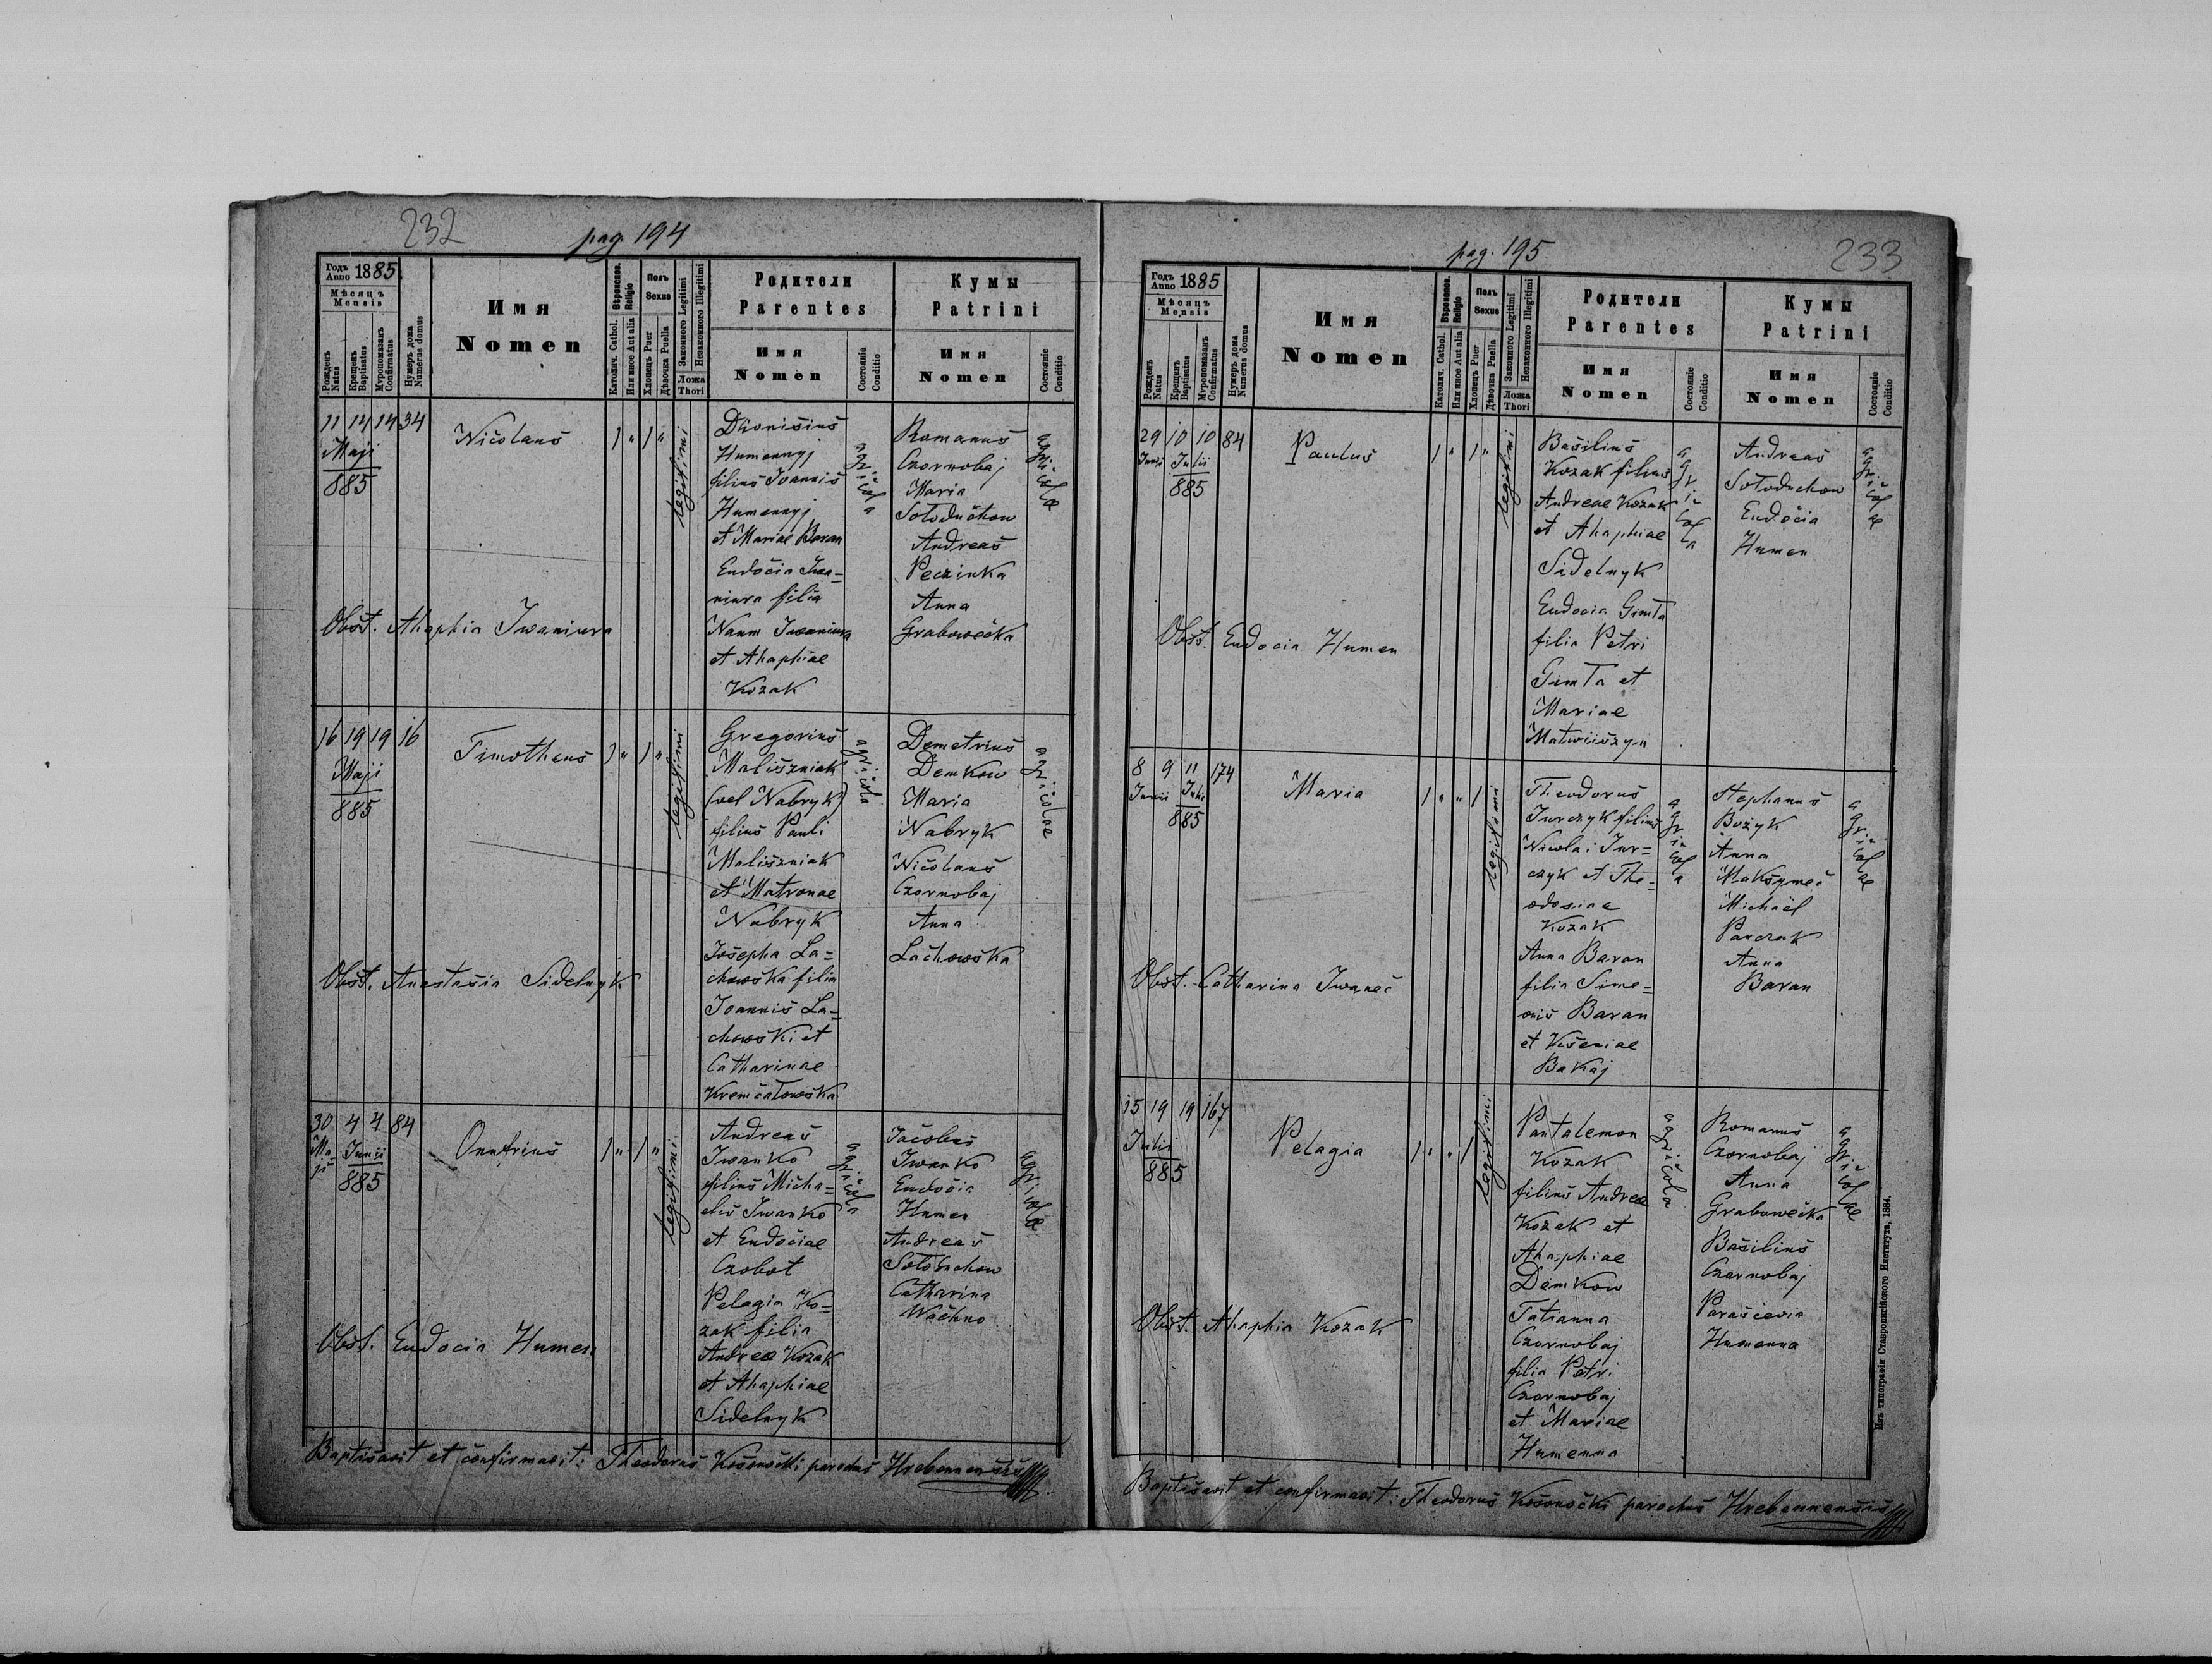 232
pag. 194
Годъ
Anno 1885
Мѣсяцъ
Mensis
Рожденъ
Natus
Крещенъ
Baptisatus
Мѵропомазанъ
Confirmatus
Нумеръ дома
Numerus domus
Имя
Nomen
Вѣроиспов.
Religio
Католич. Cathol.
Или иное Aut alia
Полъ
Sexus
Хлопецъ Puer
Дѣвочка Puella
Законного Legitimi
Незаконного Illegitimi
Ложа
Thori
Родители
Parentes
Имя
Nomen
Состояніе
Conditio
Кумы
Patrini
Имя
Nomen
Состояніе
Conditio
11 14 14 34
Maji
885
Nicolaus
1 " 1 "
legitimi
Dionisius
Humennyj
filius Joannis
Humennyj
et Mariae Baran
Eudocia Iwa=
niura filia
Naum Iwaniura
et Ahaphiae
Kozak
agricola
Romanus
Czornobaj
Maria
Sołoduchow
Andreas
Peczinka
Anna
Grabowecka
agricolae
Obst. Ahaphia Iwaniura
16 19 19 16
Maji
885
Timotheus
1 " 1 "
legitimi
Gregorius
Maliszniak
(vel Nabryk)
filius Pauli
Maliszniak
et Matronae
Nabryk
Josepha La=
chowska filia
Joannis La=
chowski et
Catharinae
Kremcałowska
agricola
Demetrius
Demkow
Maria
Nabryk
Nicolaus
Czornobaj
Anna
Lachowska
agricolae
Obst. Anastasia Sidelnyk
30 4 4 84
Maji Junii
885
Onufrius
1 " 1 "
legitimi
Andreas
Iwanko
filius Micha=
elis Iwanko
et Eudociae
Czobot
Pelagia Ko=
zak filia
Andreae Kozak
et Ahaphiae
Sidelnyk
agricola
Jacobus
Iwanko
Eudocia
Humen
Andreas
Sołoduchow
Catharina
Wachno
agricolae
Obst. Eudocia Humen
Baptisavit et confirmavit: Theodorus Kosonocki parochus Hrebennensis
pag. 195
233
Годъ
Anno 1885
Мѣсяцъ
Mensis
Рожденъ
Natus
Крещенъ
Baptisatus
Мѵропомазанъ
Confirmatus
Нумеръ дома
Numerus domus
Имя
Nomen
Вѣроиспов.
Religio
Католич. Cathol.
Или иное Aut alia
Полъ
Sexus
Хлопецъ Puer
Дѣвочка Puella
Законного Legitimi
Незаконного Illegitimi
Ложа
Thori
Родители
Parentes
Имя
Nomen
Состояніе
Conditio
Кумы
Patrini
Имя
Nomen
Состояніе
Conditio
29 10 10 84
Junii Julii
885
Paulus
1 " 1 "
legitimi
Basilius
Kozak filius
Andreae Kozak
et Ahaphiae
Sidelnyk
Eudocia Gimta
filia Petri
Gimta et
Mariae
Matwiiszyn
agricola
Andreas
Sołoduchow
Eudocia
Humen
agricolae
Obst. Eudocia Humen
8 9 11 174
Junii Julii
885
Maria
1 " " 1
legitimi
Theodorus
Jurczyk filius
Nicolai Jur=
czyk et The=
odosiae
Kozak
Anna Baran
filia Sime=
onis Baran
et Kseniae
Bakaj
agricola
Stephanus
Bożyk
Anna
Maksymec
Michaël
Panczak
Anna
Baran
agricolae
Obst. Catharina Iwanec
15 19 19 167
Julii
885
Pelagia
1 " " 1
legitimi
Pantalemon
Kozak
filius Andreae
Kozak et
Ahaphiae
Demkow
Tatianna
Czornobaj
filia Petri
Czornobaj
et Mariae
Humenna
agricola
Romanus
Czornobaj
Anna
Grabowecka
Basilius
Czornobaj
Parascevia
Humenna
agricolae
Obst. Ahaphia Kozak
Baptisavit et confirmavit: Theodorus Kosonocki parochus Hrebennensis
Изъ типографіи Ставропигійского Института, 1884.